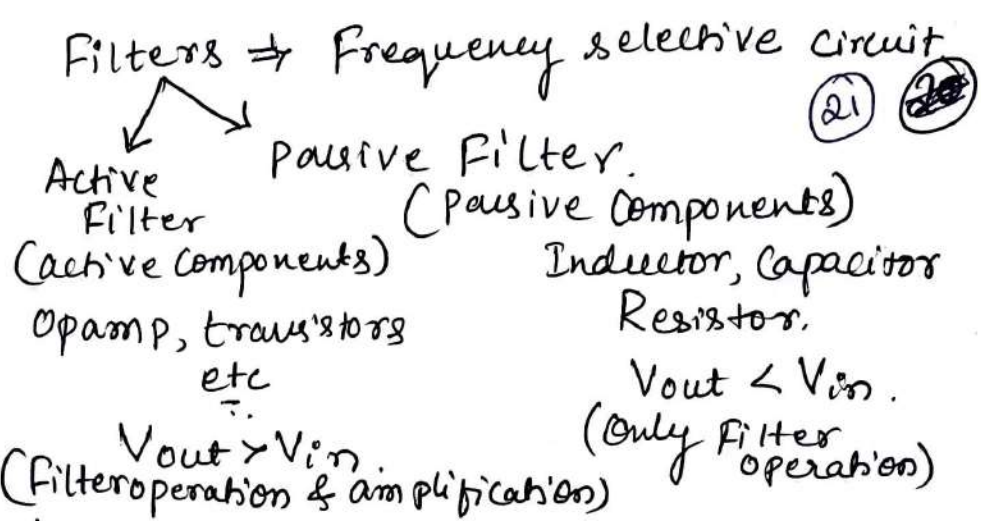 Filters ⇒ Frequency selective circuit
21
Active
Filter
(active components)
Opamp, transistors
etc
Vout > Vin.
(Filter operation & amplification)
Passive Filter.
(Passive Components)
Inductor, Capacitor
Resistor.
Vout < Vin.
(Only Filter
operation)